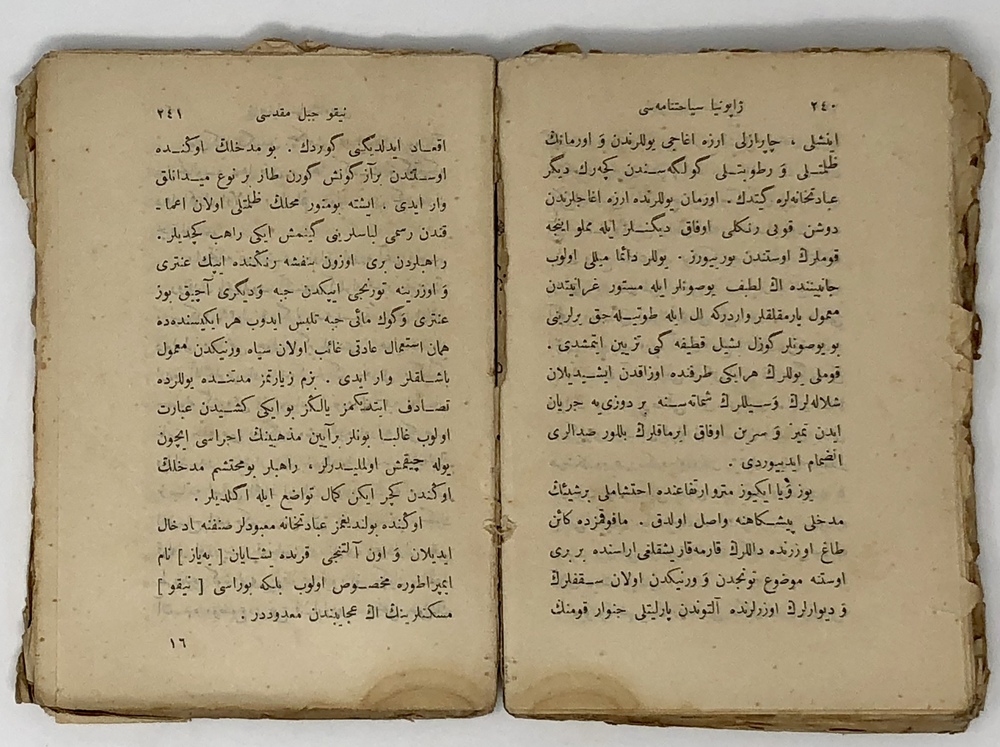 ٢٤٠ ژاپونیا سیاحتنامه‌سی
اینشلی ، چاپرازلی ارزه اغاجی یوللرندن وَ اورمانڭ
ظلمتـلی وَ رطوبتـلی کولگه‌سـندن کچه‌رك دیگر
عبادتخانه‌لره گیتدك . اورمان یوللرنده ارزه اغاجلرندن
دوشن قویی رنکلی اوفاق دیکنـلر ایله مملو اینجه
قوملرڭ اوستندن یورییورز . یوللر دائما میللی اولوب
جانبیننده اڭ لطیف یوصونلر ایله مستور غرانیتدن
معمول پارمقلقلر واردرکه ال ایله طوتیـله‌جق یرلرینی
بو یوصونلر گوزل یشیل قطیفه کبی تزیین ایتمشدی .
قوملی یوللرڭ هرایکی طرفنده اوزاقدن ایشـیدیلان
شلاله‌لرڭ وَسـیللرڭ شماته‌سـنه بر دوزی‌یه جریان
ایدن تمیز وَ سرین اوفاق ایرماقلرڭ بللور صدالری
انضمام ایدییوردی .
یوز وَیا ایکیوز مترو ارتفاعنده احتشاملی برشیئڭ
مدخلی پیشـکاهنه واصل اولدق . مافوقمزده کائن
طاغ اوزرنده داللرڭ قارمه‌قاریشقلغی اراسنده بر بری
اوستنه موضوع تونجدن وَ ورنیکدن اولان سـقفلرڭ
وَ دیوارلرڭ اوزرلرنده آلتوندن پارلیتلی جنوار قومنڭ
نیقو جبل مقدسی ٢٤١
اقعـاد ایدلدیگنی گوردك . بو مدخلڭ اوڭنـده
اوسـتندن برآز گونش گورن طار بر نوع میـدانلق
وار ایدی . ایشته بومنور محلڭ ظلمتلی اولان اعما ـ
قندن رسمی لباسلرینی گینمش ایکی راهب کچدیلر .
راهبلردن بری اوزون بنفشه رنگنده ایپك عنتری
وَ اوزرینه تورنجی ایپکدن جبه وَدیگری آچیق بوز
عنتری وَکوك مائی جبه تلبس ایدوب هر ایکیسنده‌ده
همان استعمال عادتی غائب اولان سیاه ورنیکدن معمول
باشـلقلر وار ایدی . بزم زیارتمز مدتنـده یوللرده
تصـادف ایتدیکمز یالکز بو ایکی کشـیدن عبارت
اولوب غالبـا بونلر برآیین مذهبینڭ اجراسی ایچون
یوله چیقمش اولملیـدرلر ، راهبلر بومحتشم مدخلڭ
اوڭندن کچر ایکن کمال تواضع ایله اگلدیلر .
اوڭنده بولندیغمز عبادتخانه معبودلر صنفنه ادخال
ایدیلان وَ اون آلتنجی قرنده یشـایان [ یه‌یاز ] نام
ایمپراطوره مخصـوص اولوب بلکه بوراسی [ نیقو ]
مسکنلرینڭ اڭ عجایبندن معدوددر .
١٦